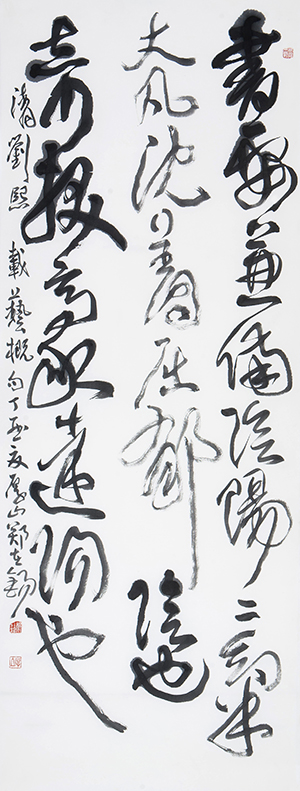 書要兼備陰陽二氣
大凡沈著屈鬱陰也
奇拔豪達陽也
清劉熙載藝概句丁亥夏山鄭錫